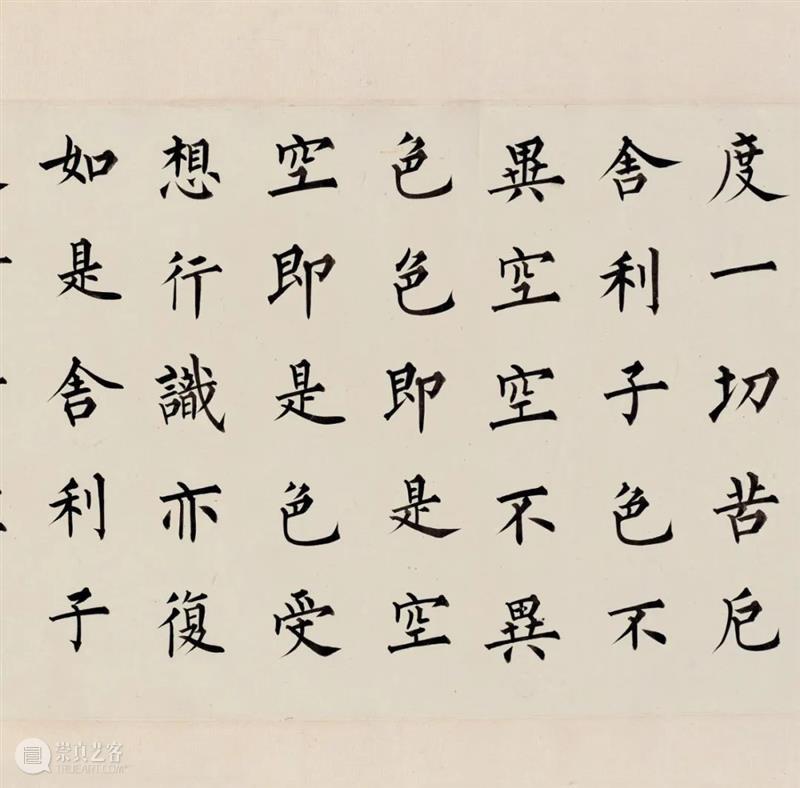 度一切苦厄
舍利子色不
異空空不異
色色即是空
空即是色受
想行識亦復
如是舍利子
崇真艺客
TRUEART.COM